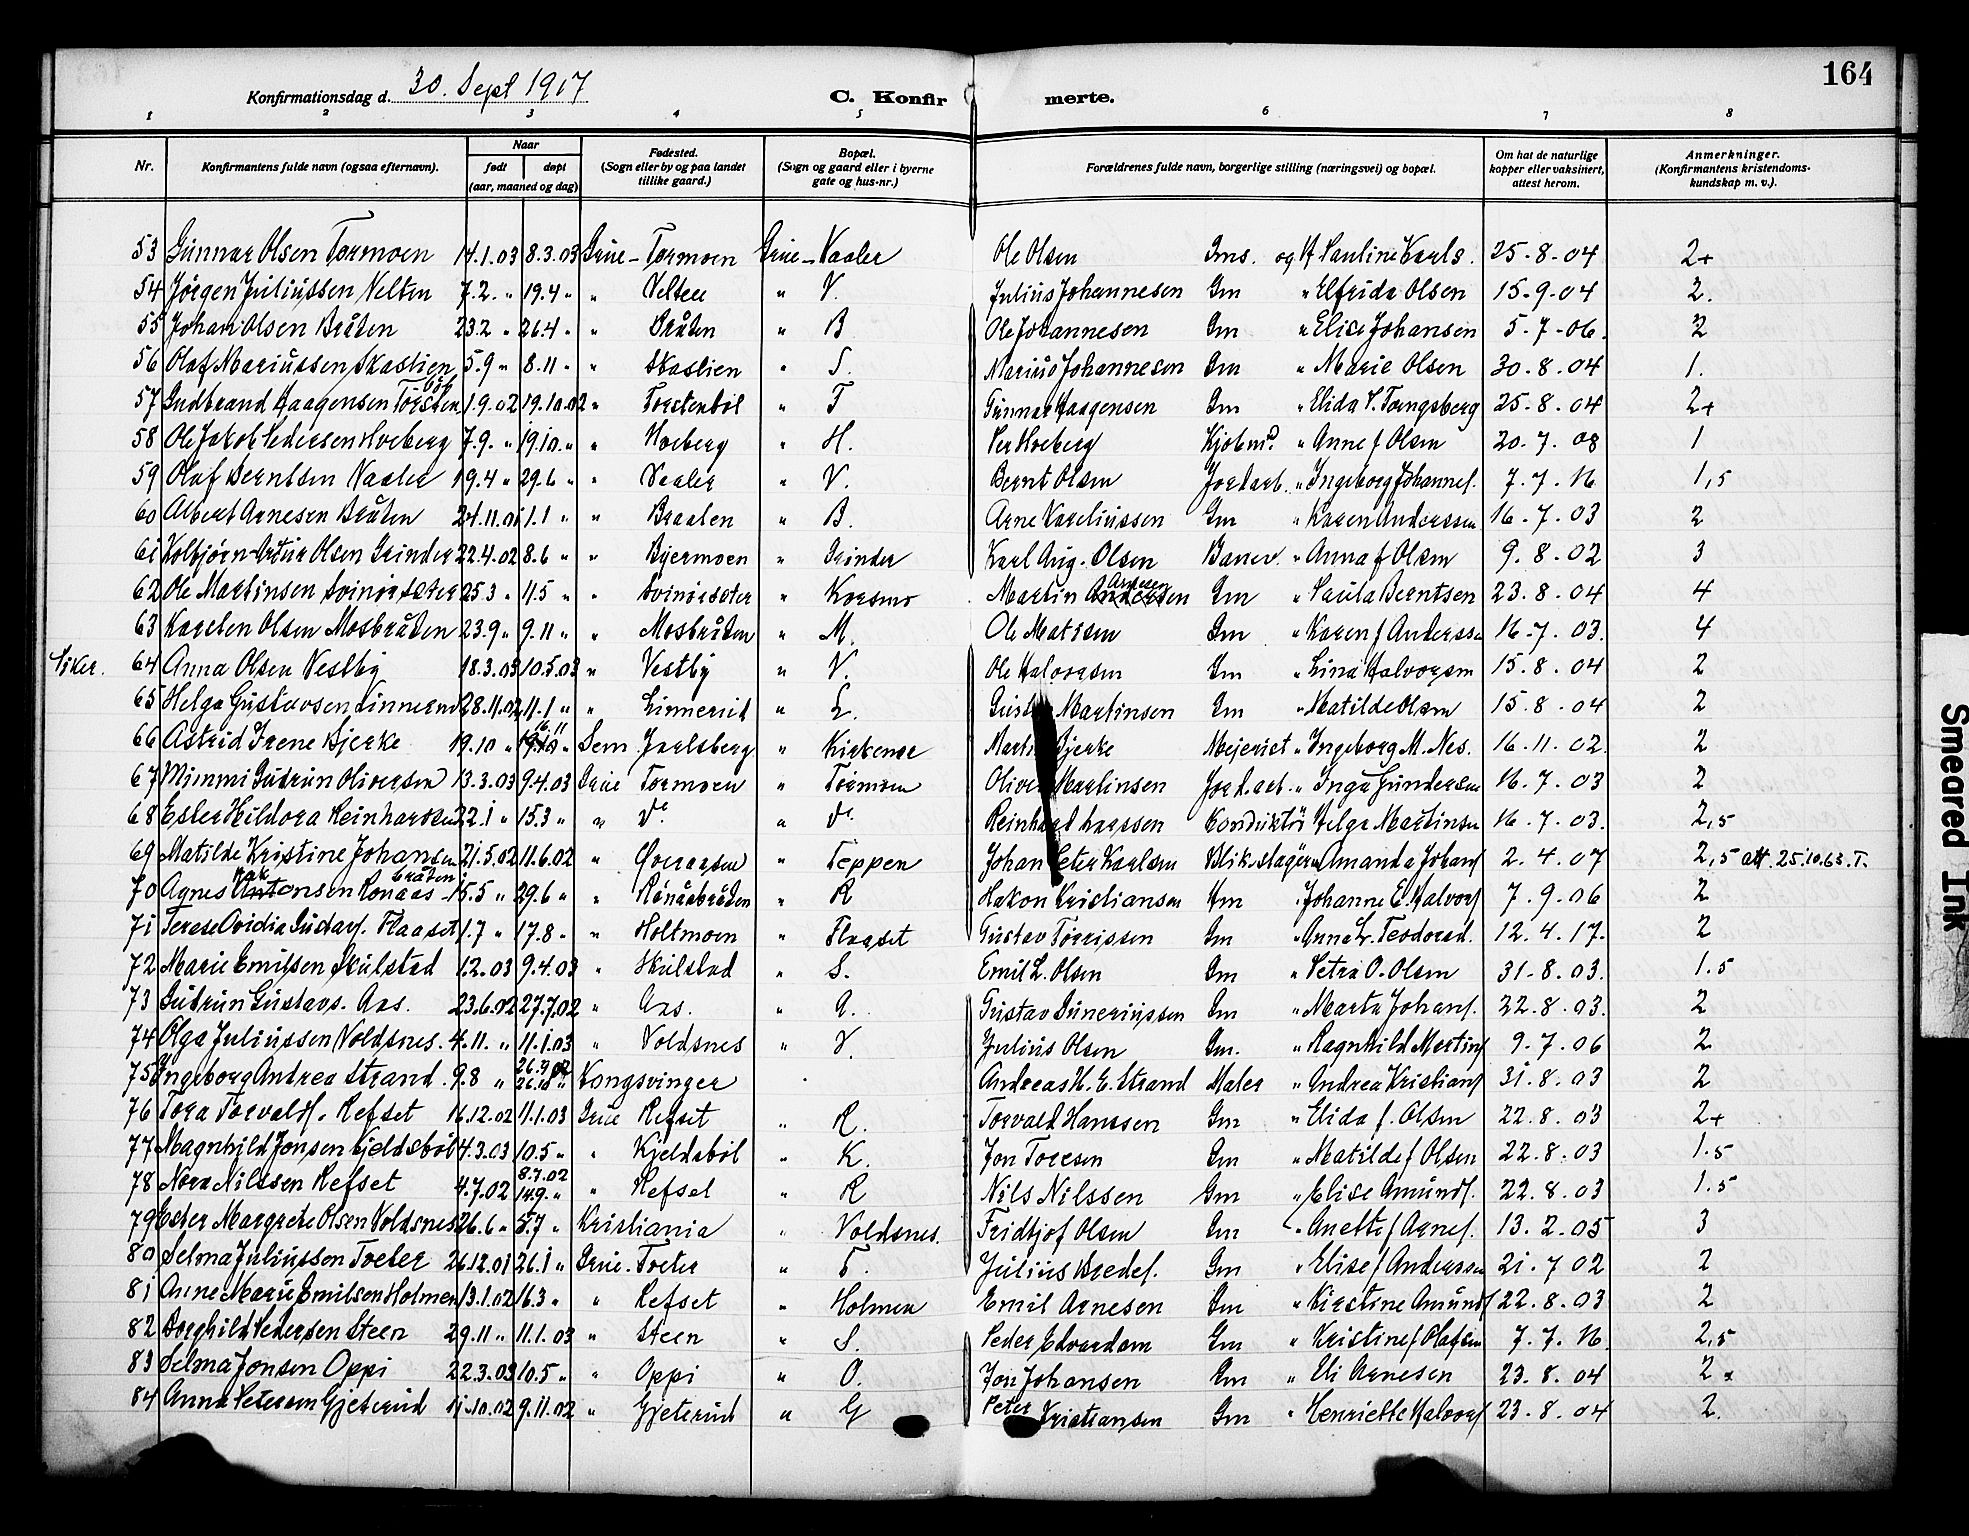 164
Konfirmationsdag d. 30. Sept 1917
C. Konfirmerte.
1 2 3 4 5 6 7 8
Nr. Konfirmantens fulde navn (ogsaa efternavn). Naar født døpt (aar, maaned og dag) Fødested. (Sogn eller by og paa landet tillike gaard.) Bopæl. (Sogn og gaard eller i byerne gate og hus-nr.) Forældrenes fulde navn, borgerlige stilling (næringsvei) og bopæl. Om hat de naturlige kopper eller vaksinert, attest herom. Anmerkninger. (Konfirmantens kristendomskundskap m. v.).
53 Gunnar Olsen Tormoen 14.1.03 8.3.03 Grue - Tormoen Grue - Vaaler Ole Olsen Gms. og H Pauline Karls. 25-8-04 2+
54 Jørgen Juliussen Velten 7.2. " 19.4 " " Velten " V. Julius Johannesen Gm " Elfrida Olsen 15-9-04 2.
55 Johan Olsen Bråten 23.2 " 26.4 " " Bråten " B Ole Johannesen Gm " Elise Johansen 5-7-06. 2
56 Olaf Mariussen Skaslien 5.9 " 8.11 " " Skaslien " S. Marius Johannesen Gm " Marie Olsen 30-8-04 1.
57 Gudbrand Haagensen Torstenbøl 1.9.02 19.10.02 " Torstenbøl " T Gunnar Haagensen Gm " Elida S. Tungsberg 25-8-04 2+
58 Ole Jakob Pedersen Hveberg 7.9. " 19.10 " " Hoeberg " H. Per Hveberg Kjøbmd. " Anne f Olsen 20.7.08 1
59 Olaf Berntsen Vaaler 19.4 " 29.6 " " Vaaler " V. Bernt Olsen Jordarb. " Ingeborg Johannes. 7.7.16 1,5
60 Albert Arnesen Bråten 24.11.01 1.1 " " Braaten " B. Arne Kareliussen Gm " Karen Anderssen 16-7.03 2
61 Kolbjørn Artur Olsen Grinder 22.4.02 8.6 " " Bjermoen " Grinder Karl Aug. Olsen Banev. " Anna f Olsen 9.8.02 3
62 Ole Martinsen Svinørsæter 25.3 " 11.5 " " Svinørsæter " Korsmo Martin Arnesen Gm " Paula Berntsen 23.8.04 4
63 Karsten Olsen Mosbråten 23.9 " 9.11 " " Mosbråten " M. Ole Matisen Gm " Karen f Anderssen 16-7.03. 4
Piker. 64 Anna Olsen Vestby 18.3.03 10.5.03 " Vestby " V. Ole Halvorsen Gm " Lina Halvorsen 15.8.04 2
65 Helga Gustavsen Linnerud 28.11.02 11.1 " " Linnerud " L. Gustav Martinsen Gm " Matilde Olsen 15.8.04 2
66 Astrid Irene Bjerke 19.10 " Sem Jarlsberg " Kirkener Martin Bjerke Mejerist " Ingeborg M. Nes. 16.11.02. 2
67 Mimmi Gudrun Oliversen 13.3.03 9.4.03 Grue Tormoen " Tormoen Oliver Martinsen Jordarb. " Inga Gundersen 16.7.03 2
68 Ester Hildora Reinhardsen 22.1 " 15.3 " " do " do Reinhard Larssen Konduktør Helga Martinsen 16.7.03. 2,5
69 Matilde Kristine Johansen 21.5.02 11.6.02 " Øveraasen " Teppen Johan Peter Karlsen Blikslager " Amanda Johans 2.4.07 2,5 att. 25.10.63. T.
70 Agnes Antonsen Ronaasbråten 15.5 " 29.6 " " Rønåsbråten " R Hakon Kristiansen Hm " Johanne E. Halvors 7.9.06 2
71 Terese Ovidia Gustavs. Flaaset 1.7 " 17.8 " " Holtmoen " Flaaset Gustav Torrissen Gm " Anna Lr. Teodorsd. 12.4.17. 2
72 Marie Emilsen Skulstad 1.2.03 9.4.03 " Skulstad " S. Emil L. Olsen Gm " Petra O. Olsen 31-8.03. 1.5
73 Gudrun Gustavs. Aas. 23.6.02 27.7.02 " Aas. " A. Gustav Guneriussen Gm " Marta Johans. 22.8.03. 2
74 Olga Juliussen Voldsnes. 4.11. " 11.1.03 " Voldsnes " V. Julius Olsen Gm. " Ragnhild Martins 9.7.06 2
75 Ingeborg Andrea Strand. 9.8 " 26.9.02 26.10 " Kongsvinger Andreas H. E. Strand Maler " Andrea Kristians 31.8.03 2
76 Tora Torvalds. Refset 16.12.02 11.1.03 Grue Refset " R. Torvald Hanssen Gm " Elida f. Olsen 22.8.03 2+
77 Magnhild Jonsen Kjeldsbøl 4.3.03 10.5 " " Kjeldsbøl " K. Jon Toresen Gm " Matilde f Olsen 22.8.03 1.5
78 Nora Nilssen Refset 4.7.02 8.7.02 14.9. " " Refset " R Nils Nilssen Gm " Elise Amunds. 22.8.03 1.5
79 Ester Margrete Olsen Voldsnes 26.6 " 5.7 " Kristiania " Voldsnes. Fridtjof Olsen Gm " Anette f Arnes. 13.2.05 3
80 Selma Juliussen Tveter 26.12.01 26.1 " Grue. Tveter " T. Julius Bredes. Gm " Elise f Anderssen 21.7 02 2
81 Anne Marie Emilsen Holmen 13.1.02 16.3 " " Refset " Holmen Emil Arnesen Gm " Kirstine Amunds 22.8.03 2
82 Borghild Pedersen Steen 29.11 " 11.1.03 " Steen " S. Peder Edvardsen Gm " Kristine f Olafsen 7.7.16. 2,5
83 Selma Jonsen Oppi 22.3.03 10.5 " " Oppi " O. Jon Johansen Gm " Eli Arnesen 23.8.04 2
84 Anna Petersen Gjeterud 11.10.02 9.11.02 " Gjeterud " G Peter Kristiansen Gm " Henriette Halvors 23-8.04 2.
Smeared Ink